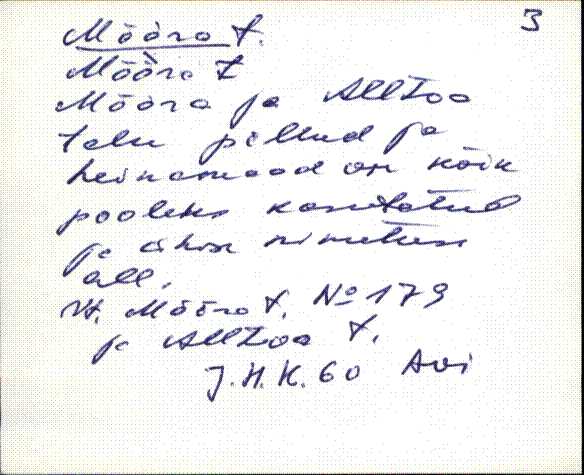 3
Mööra t.
Mööra t
Mööra ja Alltoa
talu põllud ja
heinamaad on kõik
pooleks kasutatud
ja ühise nimetuse
all.
Vt. Mööra t. No 179
ja Alltoa t.
J.H.K. 60 Avi